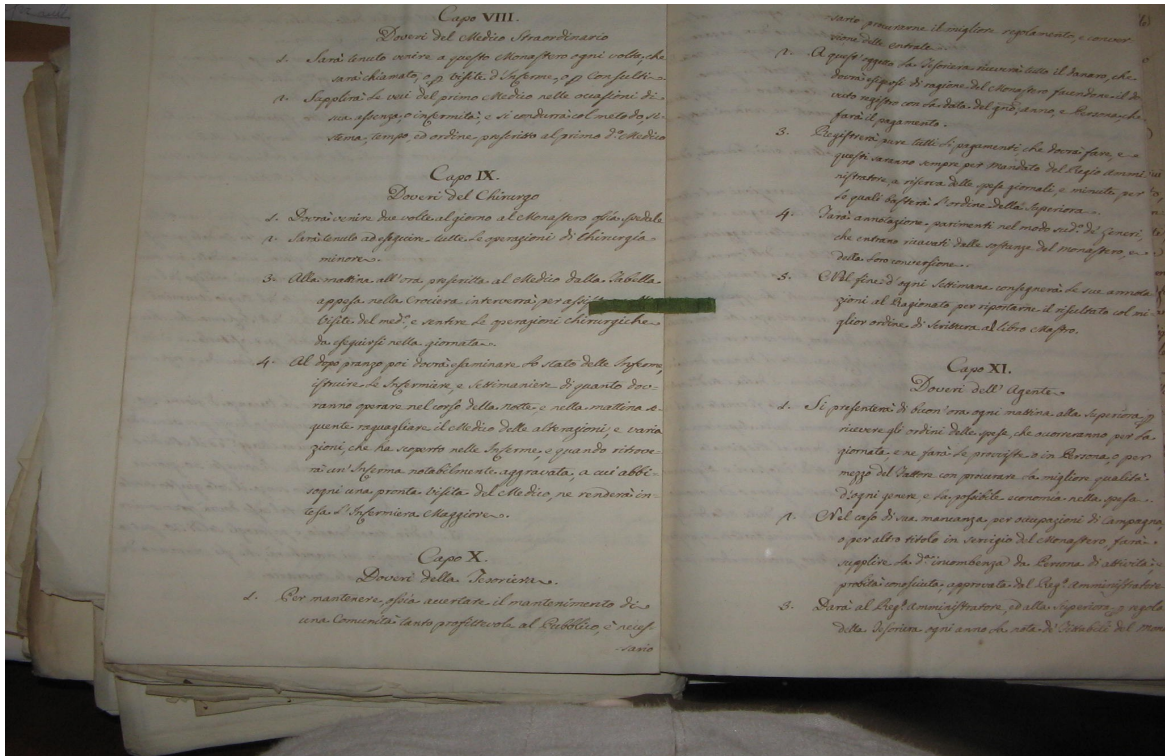 Capo VIII.
Doveri del Medico Straordinario
1. Sarà tenuto venire a questo Monastero ogni volta, che
sarà chiamato, o p visite d'Inferme, o p Consulti
2. Supplirà le veci del primo Medico nelle occasioni di
sua assenza, o infermità, e si condurrà col metodo, si-
stema, tempo, ed ordine prescritto al primo d.º Medico
Capo IX.
Doveri del Chirurgo
1. Dovrà venire due volte al giorno al Monastero ossia Spedale
2. Sarà tenuto ad eseguire tutte le operazioni di Chirurgia
minore
3. Alla mattina all'ora prescritta al Medico dalla Tabella
appesa nella Crociera interverrà per
visite del med.º, e sentire le operazioni chirurgiche
da eseguirsi nella giornata
4. Al dopo pranzo poi dovrà esaminare lo stato delle Inferme
istruire le Infermiere, e Settimaniere di quanto dov-
ranno operare nel corso della notte, e nella mattina se-
quente raguagliare il Medico delle alterazioni, e varia
zioni, che ha scoperto nelle Inferme, e quando ritrove-
rà un' Inferma notabilmente aggravata, a cui abbi-
sogni una pronta visita del Medico, ne renderà in-
tesa l'Infermiera Maggiore.
Capo X.
Doveri della Tesoriera
1. Per mantenere, ossia accertare il mantenimento di
una Comunità tanto profittevole al Pubblico, è neces
sario
sario procurarne il migliore regolamento, e conver
sione delle entrate
2. A quest' oggetto la Tesoriera riceverà tutto il danaro, che
dovrà esigersi di ragione del Monastero facendone il do
vuto registro con la data del gno, anno, e Persona, che
farà il pagamento.
3. Registrerà pure tutti li pagamenti che dovrà fare, e
questi saranno sempre per mandato del Regio Ammi
nistratore, a riserva delle spese giornali, e minute, per
le quali basterà l'ordine della Superiora
4. Farà annotazione parimenti nel modo sud.º di Generi,
che entrano ricavati dalle sostanze del monastero, e
della loro conversione
5. Nel fine d'ogni Settimana consegnerà le sue annota
zioni al Ragionato per riportarne il risultato col mi
glior ordine di Scrittura al libro Mastro.
Capo XI.
Doveri dell' Agente
1. Si presenterà di buon' ora ogni mattina alla Superiora p
ricevere gli ordini delle spese, che occorreranno per la
giornata, e ne farà le proviste o in Persona, o per
mezzo del Fattore con procurare la migliore qualità
d'ogni genere, e la possibile economia nella spesa
2. Nel caso di sua mancanza per occupazioni di Campagna,
o per altro titolo in servigio del Monastero farà
supplire la d.ª incombenza da Persona di attività
probità conosciuta, approvata dal Reg.º Amministratore
3. Darà al Reg.º Amministratore, ed alla Superiora p regola
della Tesoriera ogni anno la nota di Fittabili del Mon